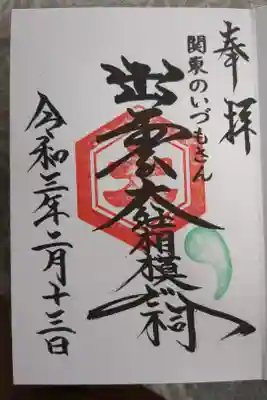 奉拝
関東のいづもさん
出雲大社相模分祠
令和三年二月十三日